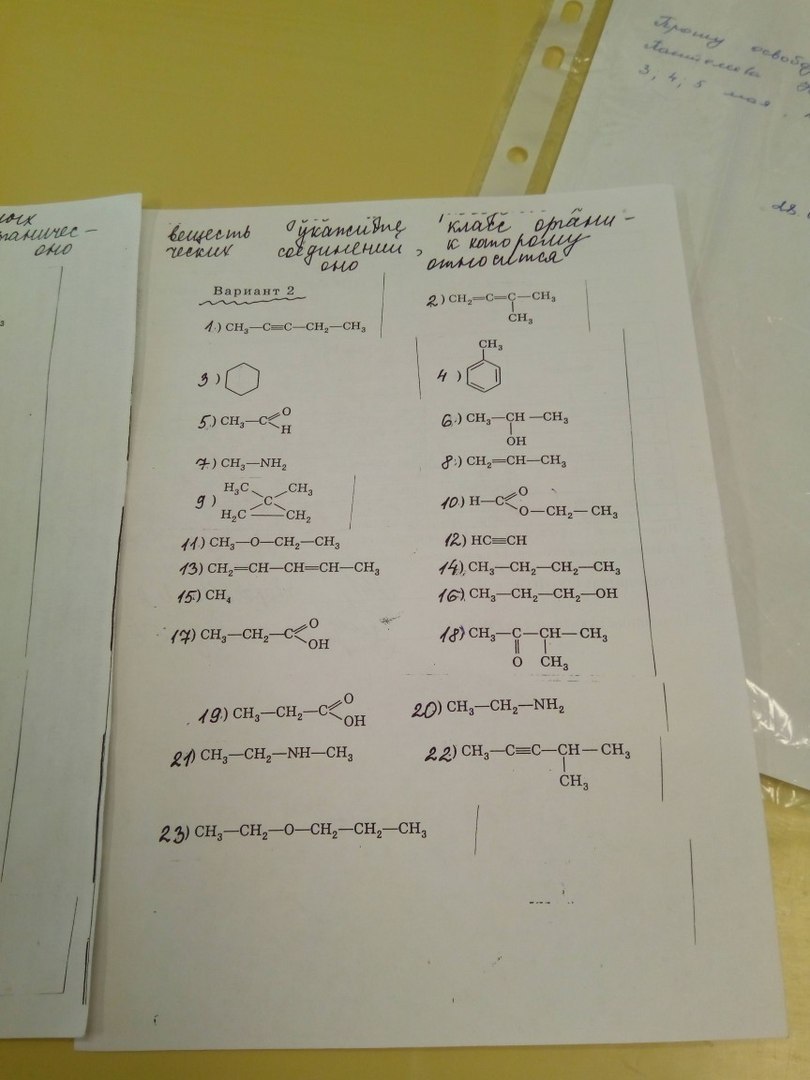 Прошу
3, 4, 5 мая
оно
веществ укажите класс органи-
ческих соединений, к которому
оно относится
Вариант 2
1.) CH₃—C≡C—CH₂—CH₃
2.) CH₂=C=C—CH₃
CH₃
3.)
4.) CH₃
5.) CH₃—C
O
H
6.) CH₃—CH—CH₃
OH
7.) CH₃—NH₂
8.) CH₂=CH—CH₃
9.) H₃C CH₃
C
H₂C—CH₂
10.) H—C
O
O—CH₂—CH₃
11) CH₃—O—CH₂—CH₃
12) HC≡CH
13) CH₂=CH—CH=CH—CH₃
14) CH₃—CH₂—CH₂—CH₃
15) CH₄
16) CH₃—CH₂—CH₂—OH
17) CH₃—CH₂—C
O
OH
18) CH₃—C—CH—CH₃
O CH₃
19) CH₃—CH₂—C
O
OH
20) CH₃—CH₂—NH₂
21) CH₃—CH₂—NH—CH₃
22) CH₃—C≡C—CH—CH₃
CH₃
23) CH₃—CH₂—O—CH₂—CH₂—CH₃